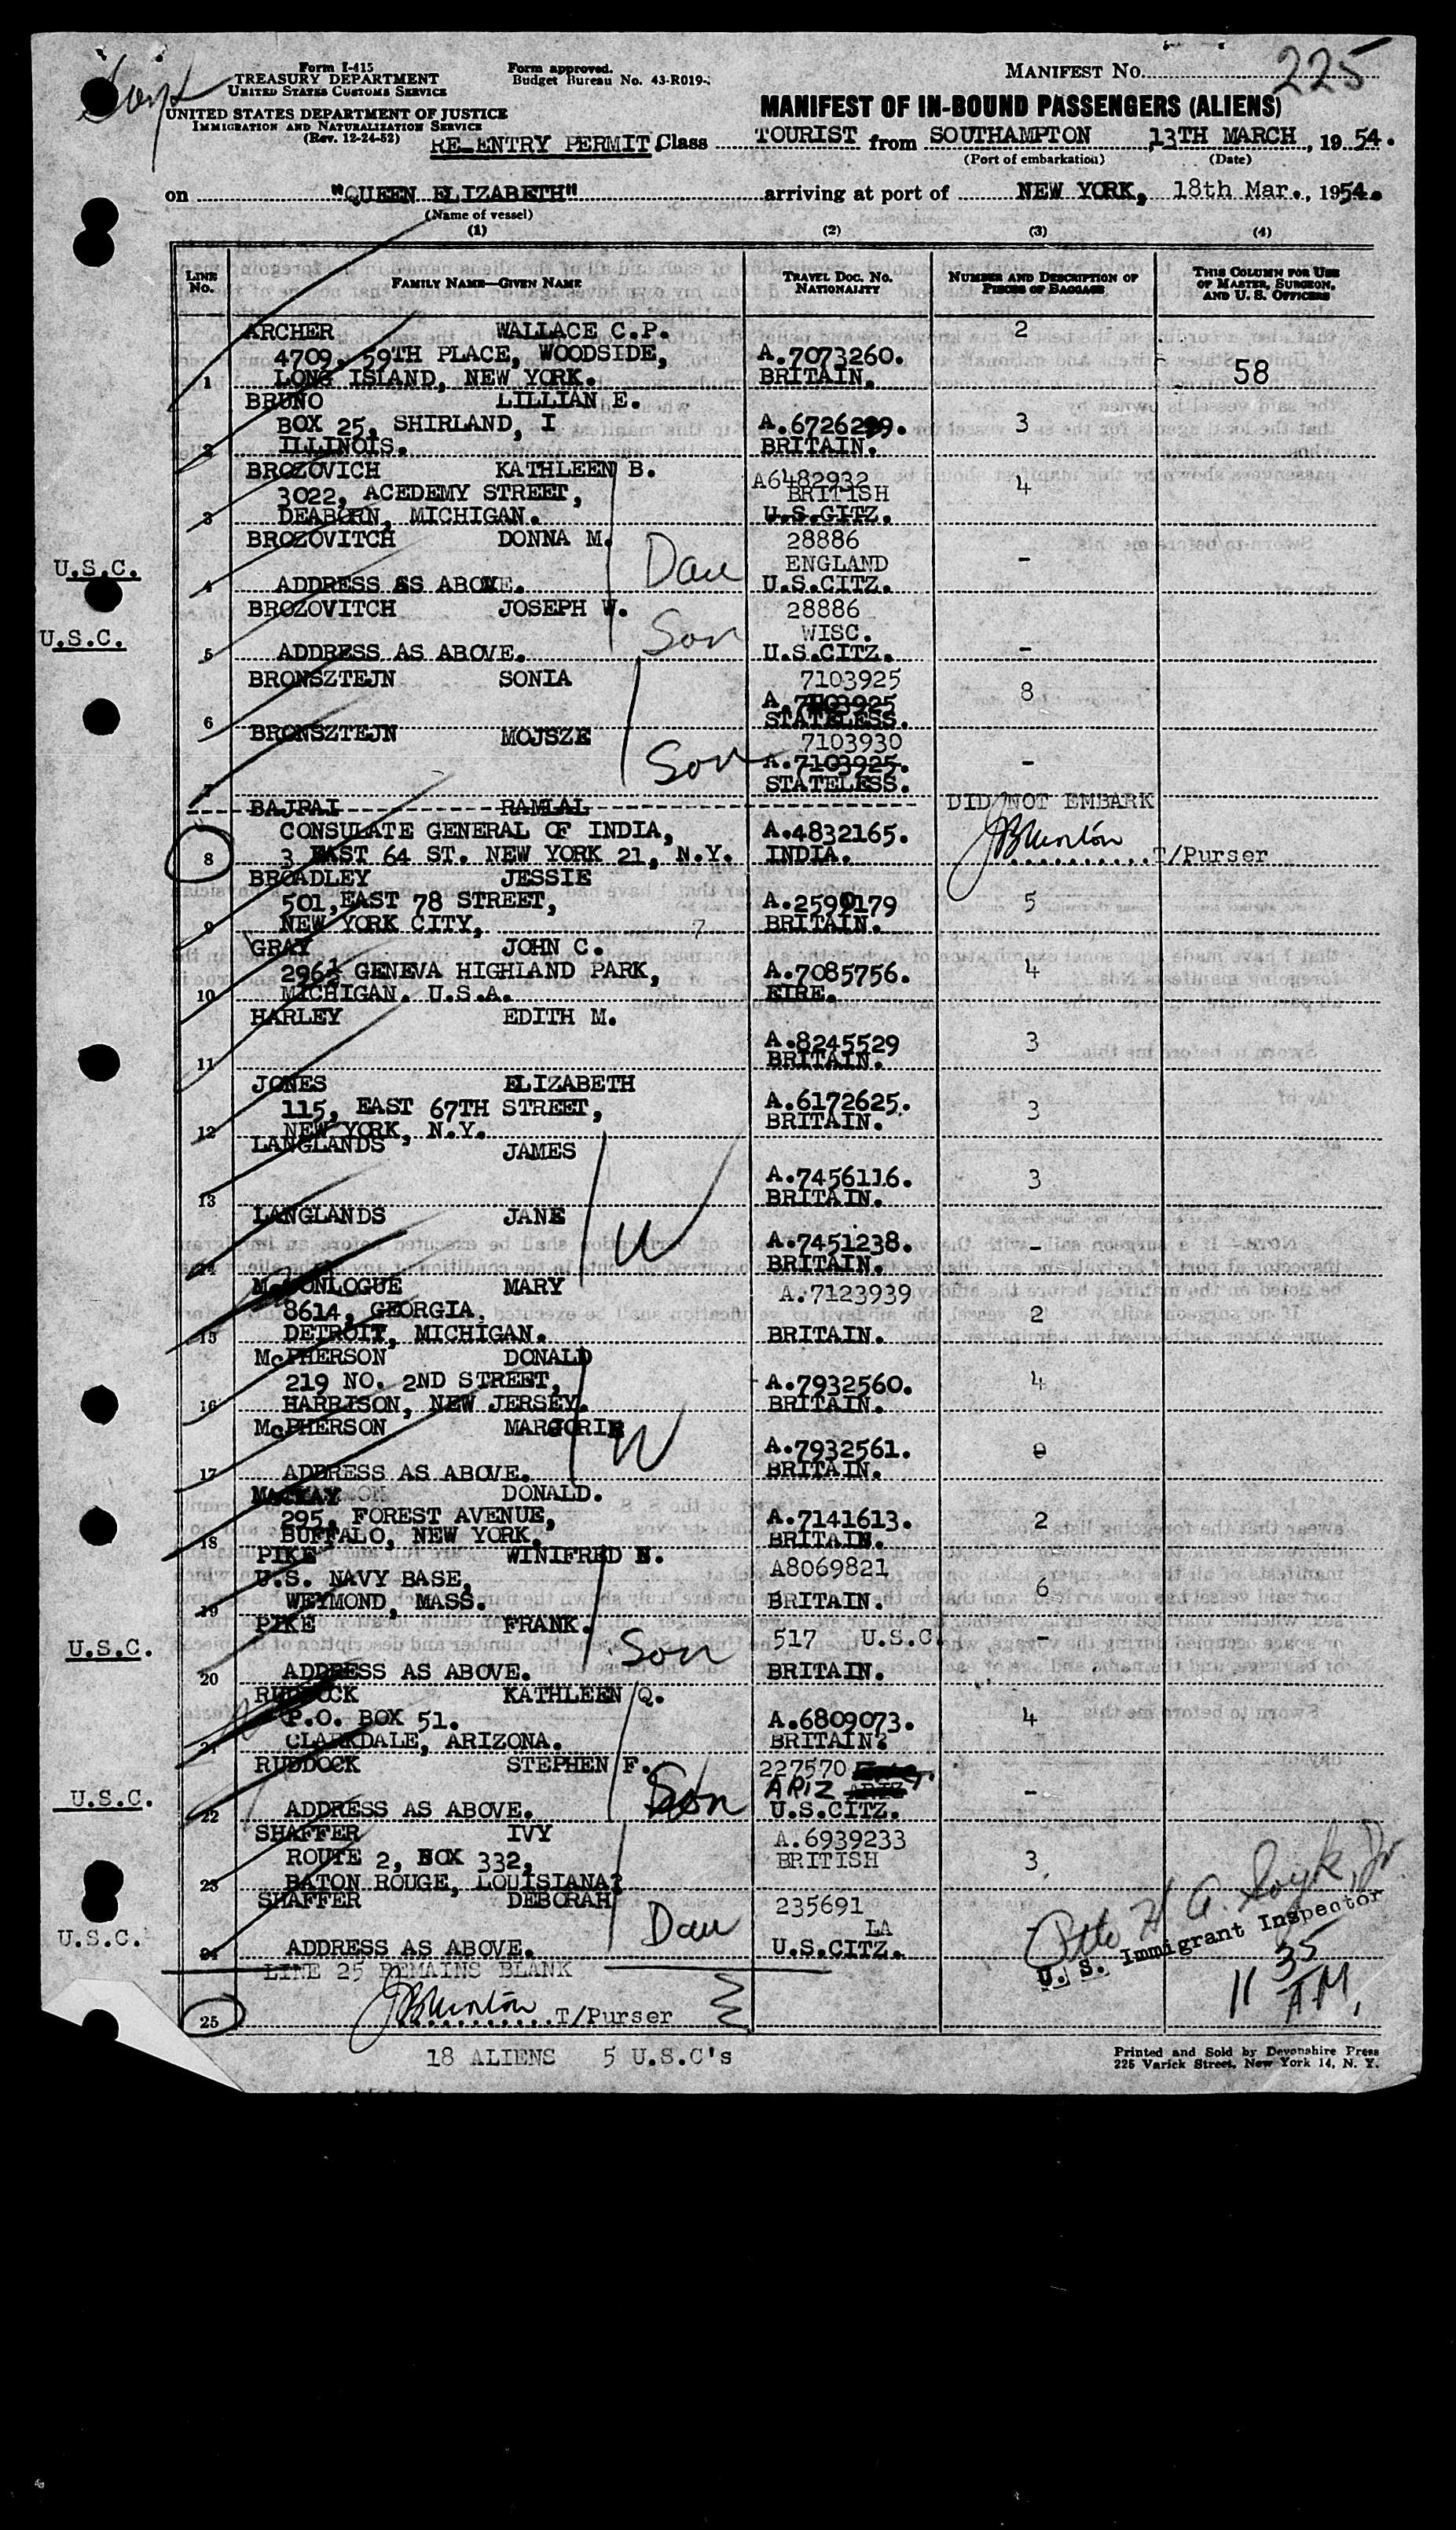 Form I-415
TREASURY DEPARTMENT
UNITED STATES CUSTOMS SERVICE
UNITED STATES DEPARTMENT OF JUSTICE
IMMIGRATION AND NATURALIZATION SERVICE
(Rev. 12-24-52)
Form approved.
Budget Bureau No. 43-R019-
MANIFEST NO. 225
MANIFEST OF IN-BOUND PASSENGERS (ALIENS)
RE-ENTRY PERMIT Class TOURIST from SOUTHAMPTON, 13TH MARCH, 1954.
(Port of embarkation) (Date)
on "QUEEN ELIZABETH" arriving at port of NEW YORK, 18th Mar., 1954.
(Name of vessel)
(1) (2) (3) (4)
LINE NO. FAMILY NAME—GIVEN NAME TRAVEL DOC. NO. NATIONALITY NUMBER AND DESCRIPTION OF PIECES OF BAGGAGE THIS COLUMN FOR USE OF MASTER, SURGEON, AND U. S. OFFICERS
ARCHER WALLACE C.P. 2
4709, 59TH PLACE, WOODSIDE, A.7073260.
1 LONG ISLAND, NEW YORK. BRITAIN. 58
BRUNO LILLIAN E.
BOX 25, SHIRLAND, I A.6726299. 3
2 ILLINOIS. BRITAIN.
BROZOVICH KATHLEEN B. A6482932
3022, ACEDEMY STREET, BRITISH 4
3 DEABORN, MICHIGAN. U.S.CITZ.
BROZOVITCH DONNA M. Dau 28886
ENGLAND -
U.S.C. 4 ADDRESS AS ABOVE. U.S.CITZ.
BROZOVITCH JOSEPH W. Son 28886
U.S.C. WISC.
5 ADDRESS AS ABOVE. U.S.CITZ. -
BRONSZTEJN SONIA 7103925 8
A.7103925
6 STATELESS.
BRONSZTEJN MOJSZE Son 7103930
A.7103925. -
7 STATELESS.
BAJRAI RAMLAL DID NOT EMBARK
CONSULATE GENERAL OF INDIA, A.4832165.
8 3 EAST 64 ST. NEW YORK 21, N.Y. INDIA. T/Purser
BROADLEY JESSIE
501, EAST 78 STREET, A.2590179 5
9 NEW YORK CITY, 7 BRITAIN.
GRAY JOHN C.
296½ GENEVA HIGHLAND PARK, A.7085756. 4
10 MICHIGAN. U.S.A. EIRE.
HARLEY EDITH M.
A.8245529 3
11 BRITAIN.
JONES ELIZABETH
115, EAST 67TH STREET, A.6172625. 3
12 NEW YORK, N.Y. BRITAIN.
LANGLANDS JAMES
A.7456116. 3
13 BRITAIN.
LANGLANDS JANE W
A.7451238. -
14 BRITAIN.
McCONLOGUE MARY A.7123939
8614, GEORGIA, 2
15 DETROIT, MICHIGAN. BRITAIN.
McPHERSON DONALD
219 NO. 2ND STREET, A.7932560. 4
16 HARRISON, NEW JERSEY. BRITAIN.
McPHERSON MARGORIE W
A.7932561.
17 ADDRESS AS ABOVE. BRITAIN.
MACKAY DONALD.
295, FOREST AVENUE, A.7141613. 2
18 BUFFALO, NEW YORK. BRITAIN.
PIKE WINIFRED N. A8069821
U.S. NAVY BASE, 6
19 WEYMOND, MASS. BRITAIN.
PIKE FRANK. Son 517 U.S.C. -
U.S.C.
20 ADDRESS AS ABOVE. BRITAIN.
RUDDOCK KATHLEEN Q.
P.O. BOX 51. A.6809073. 4
21 CLARKDALE, ARIZONA. BRITAIN?
RUDDOCK STEPHEN F. Son 227570
U.S.C. ARIZ -
22 ADDRESS AS ABOVE. U.S.CITZ.
SHAFFER IVY A.6939233
ROUTE 2, BOX 332, BRITISH 3
23 BATON ROUGE, LOUISIANA?
SHAFFER DEBORAH Dau 235691
U.S.C. LA -
24 ADDRESS AS ABOVE. U.S.CITZ.
Otto H A. Soyk, Jr
U. S. Immigrant Inspector
11 35 AM.
LINE 25 REMAINS BLANK
25 T/Purser
18 ALIENS 5 U.S.C's
Printed and Sold by Devonshire Press
225 Varick Street, New York 14, N. Y.